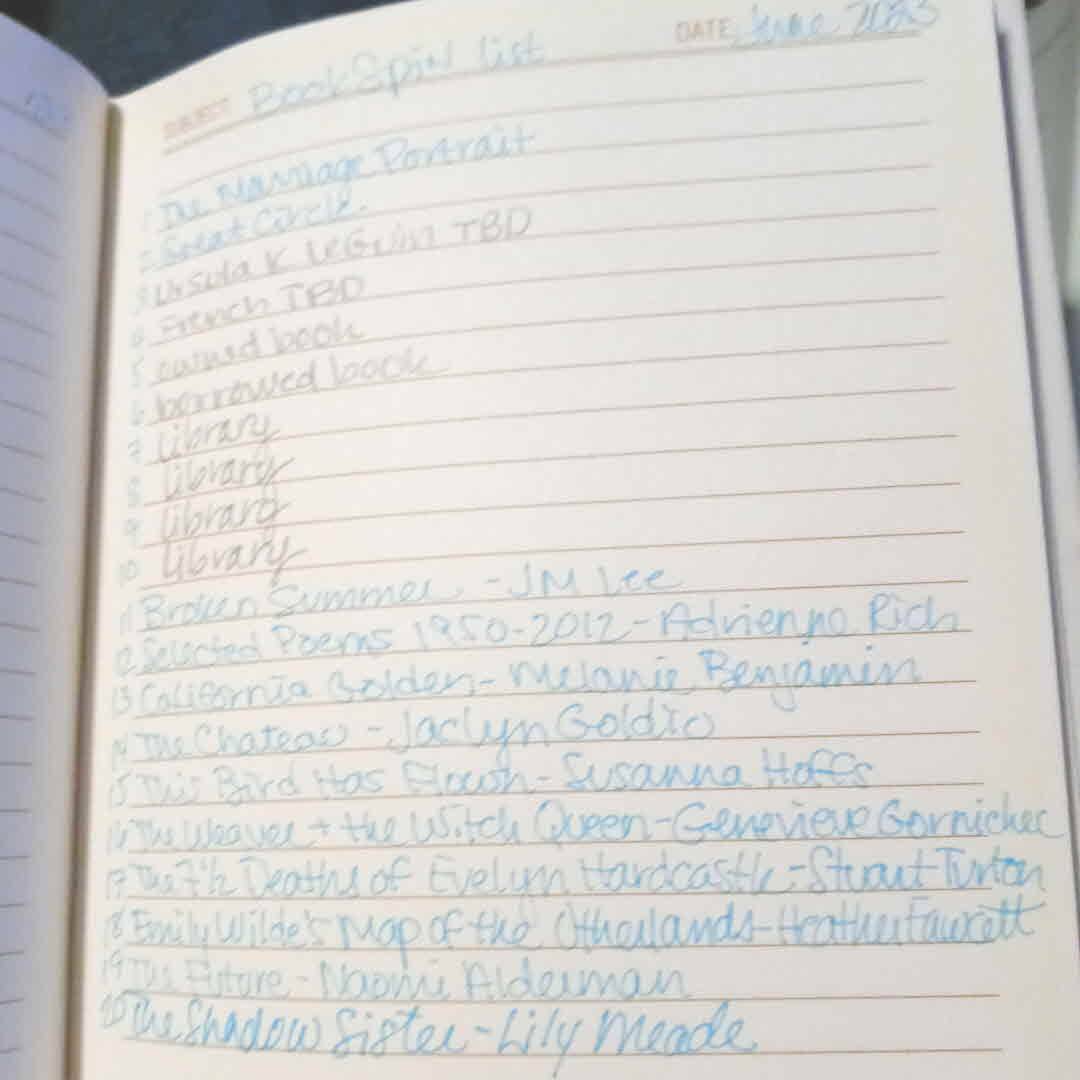 DATE June 2023
SUBJECT BookSpin list
1 The Marriage Portrait
2 Great Circle.
3 Ursula K LeGuin TBD
4 French TBD
5 owned book
6 borrowed book
7 library
8 library
9 library
10 library
11 Broken Summer - JM Lee
12 Selected Poems 1950-2012 - Adrienne Rich
13 California Golden - Melanie Benjamin
14 The Chateau - Jaclyn Goldis
15 This Bird Has Flown - Susanna Hoffs
16 The Weaver + the Witch Queen - Genevieve Gornichec
17 The 7½ Deaths of Evelyn Hardcastle - Stuart Turton
18 Emily Wilde's Map of the Otherlands - Heather Fawcett
19 The Future - Naomi Alderman
20 The Shadow Sister - Lily Meade